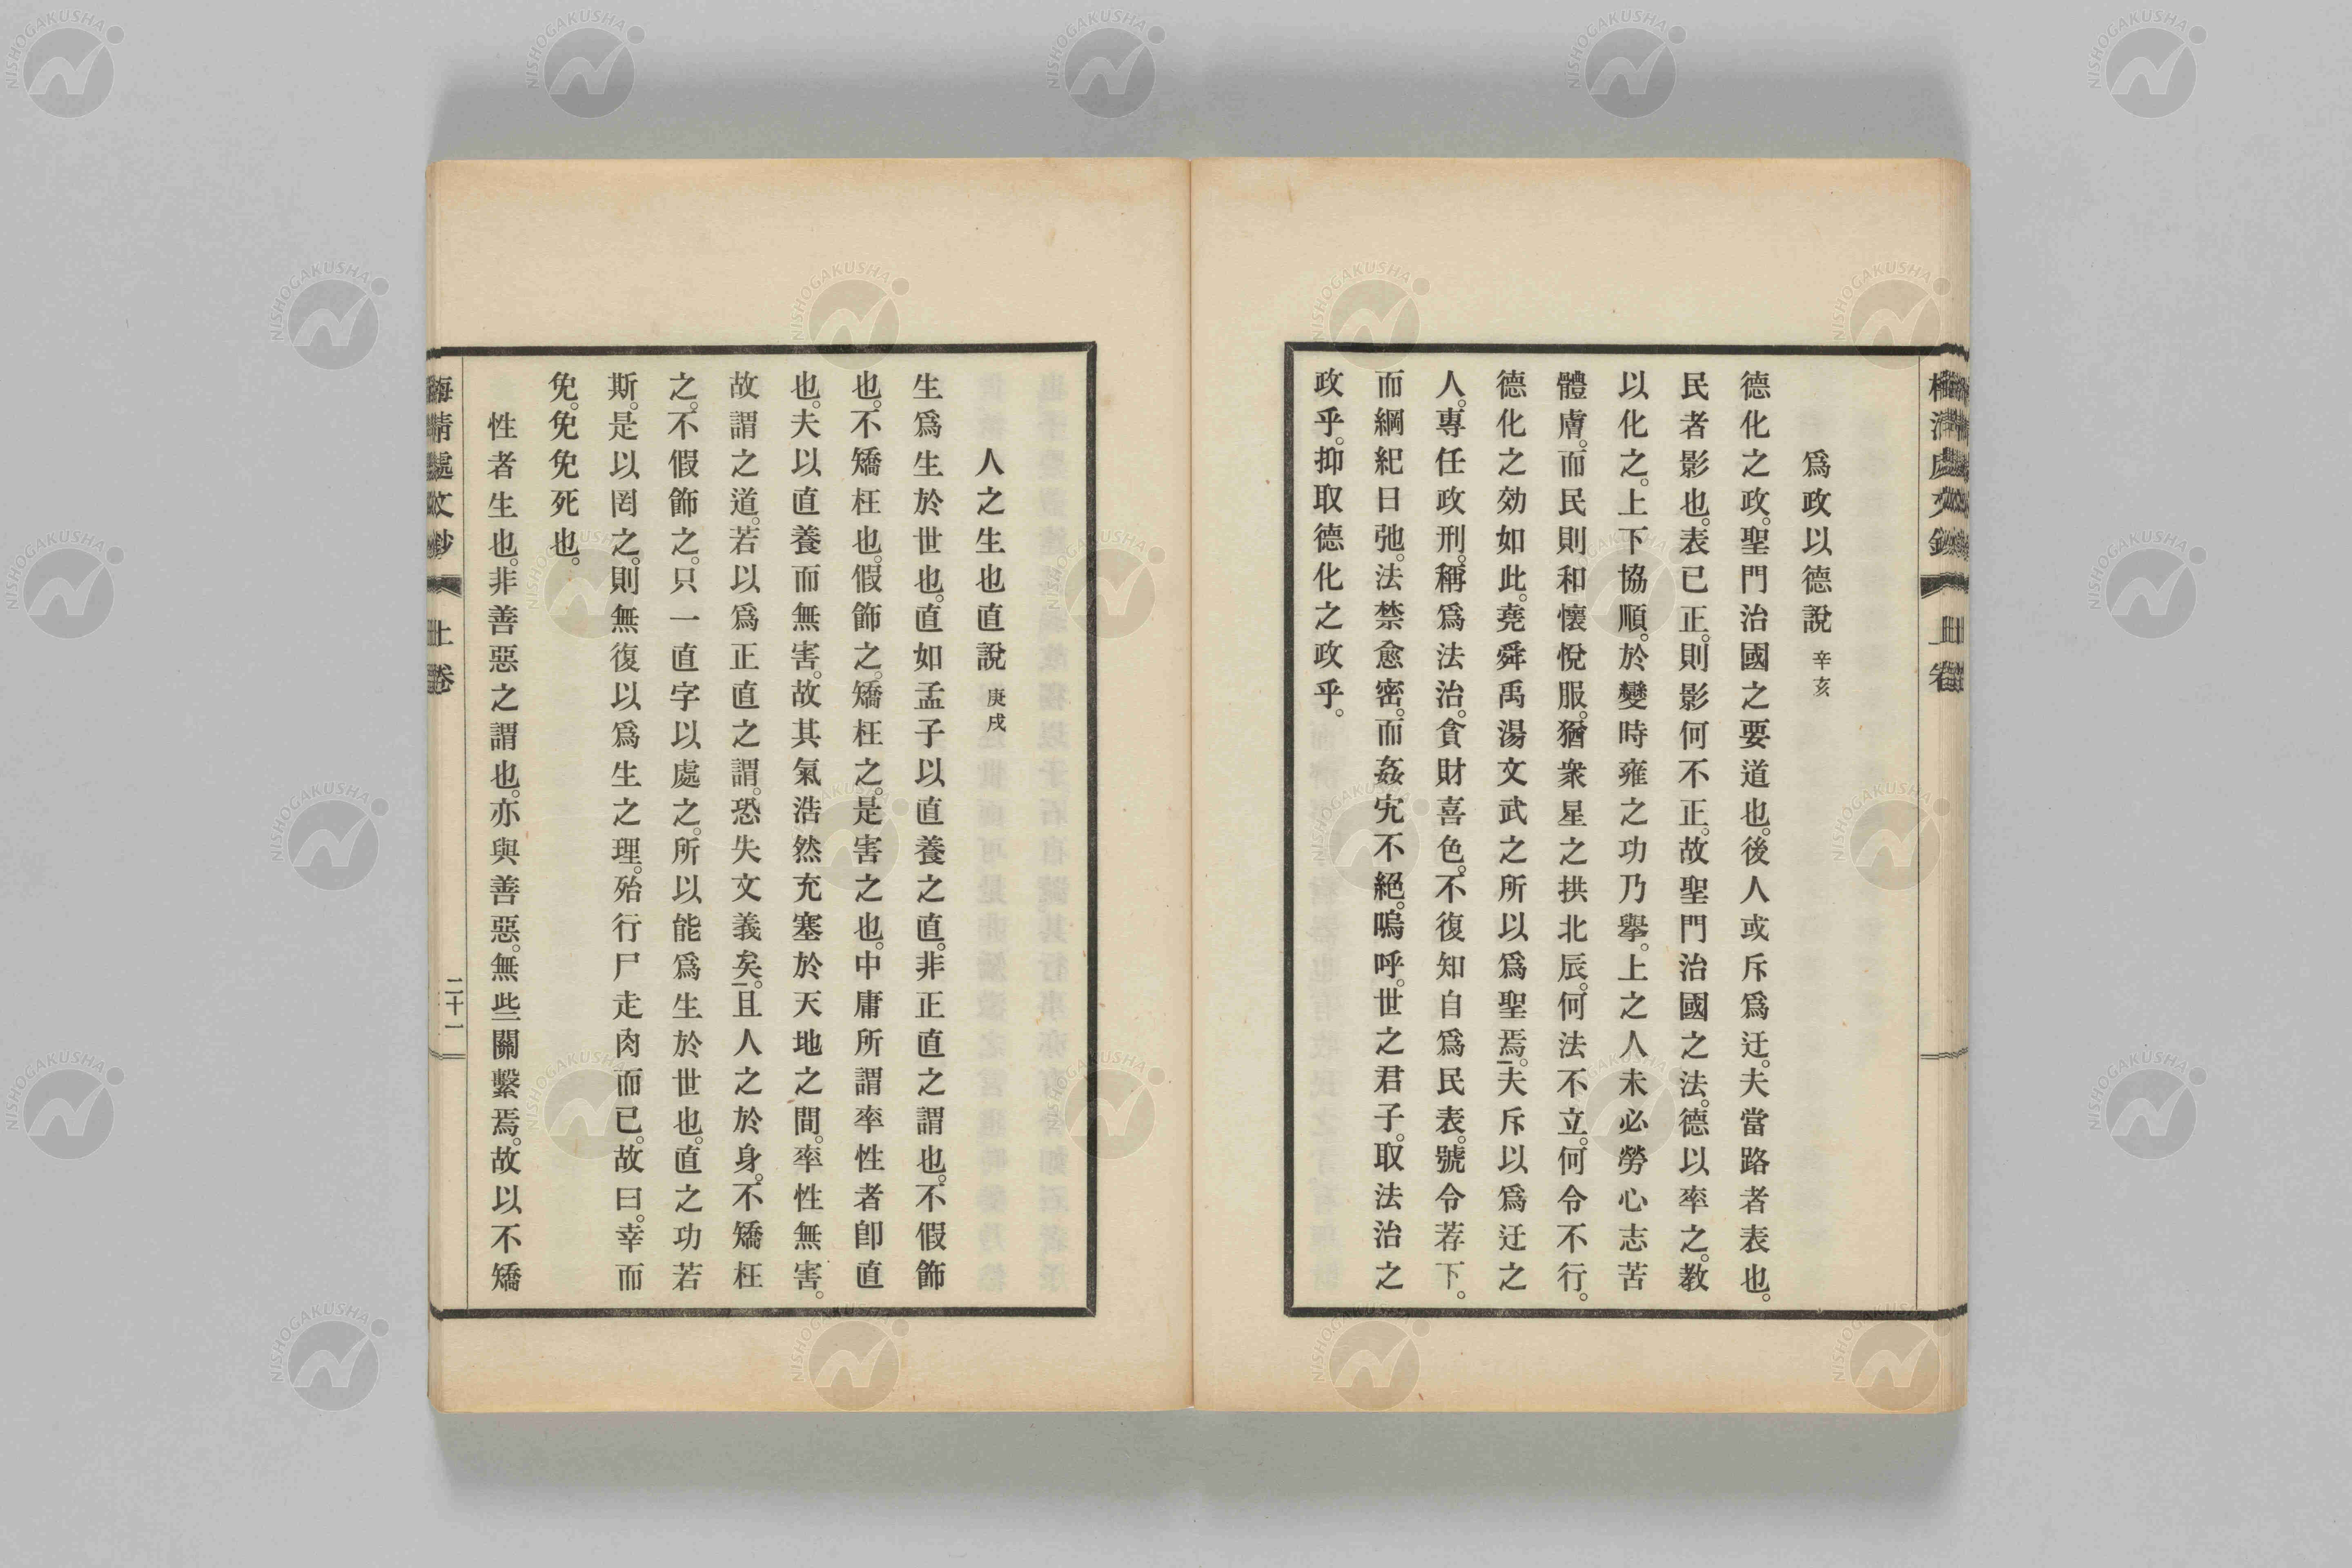 爲政以德說 辛亥
德化之政。聖門治國之要道也。後人或斥爲迂。夫當路者表也。
民者影也。表已正。則影何不正。故聖門治國之法。德以率之。教
以化之。上下協順。於變時雍之功乃擧。上之人未必勞心志苦
體膚。而民則和懷悅服。猶衆星之拱北辰。何法不立。何令不行。
德化之効如此。堯舜禹湯文武之所以爲聖焉。夫斥以爲迂之
人。專任政刑。稱爲法治。貪財喜色。不復知自爲民表。號令荐下。
而綱紀日弛。法禁愈密。而姦宄不絕。嗚呼。世之君子。取法治之
政乎。抑取德化之政乎。
人之生也直說 庚戌
生爲生於世也。直如孟子以直養之直。非正直之謂也。不假飾
也。不矯枉也。假飾之。矯枉之。是害之也。中庸所謂率性者卽直
也。夫以直養而無害。故其氣浩然充塞於天地之間。率性無害。
故謂之道。若以爲正直之謂。恐失文義矣。且人之於身。不矯枉
之。不假飾之。只一直字以處之。所以能爲生於世也。直之功若
斯。是以罔之。則無復以爲生之理。殆行尸走肉而已。故曰。幸而
免。免免死也。
性者生也。非善惡之謂也。亦與善惡。無些關繫焉。故以不矯
梅清處文鈔 上卷 二十一
NISHOGAKUSHA